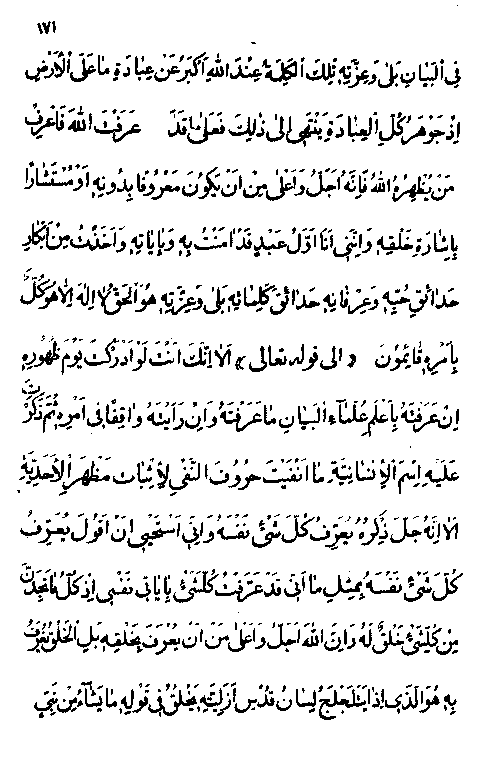 ١٧١
فی البیان بلی وعزّته تلک الکلمة عند الله اکبر عن عبادة ما علی الأرض
اذ جوهر کلّ العبادة ینتهی الی ذلک فعلی ما قد عرفت الله فاعرف
من یظهره الله فانّه اجلّ واعلی من ان یکون معروفا بدونه او مستشارا
باشارة خلقه وانّنی انا اوّل عبد قد امنت به وبایاته واخذت من ابکار
حدائق حبّه وعرفانه حدائق کلماته بلی وعزّته هو الحقّ لا اله الا هو کلّ
بامره قائمون «الی قوله تعالی» الا انّک انت لو ادرکت یوم ظهوره
ان عرفته باعلم علماء البیان ما عرفته وان رأیته واقفا فی امره ثمّ ذکرت
علیه اسم الأنسانیّة ما انفیت حروف النفی لأثبات مظهر الأحدیّة
الا انّه جلّ ذکره یعرّف کلّ شیء نفسه وانّی استحیی ان اقول یعرّف
کلّ شیء نفسه بمثل ما انّی قد عرّفت کلّشیء بایاتی نفسی اذ کلّ ما تجدنّ
من کلّشیء خلق له وانّ الله اجلّ واعلی من ان یعرف بخلقه بل الخلق یعرف
به هو الّذی اذا یتلجلج لسان قدس ازلیّته یخلق فی قوله ما یشاء من نبیّ